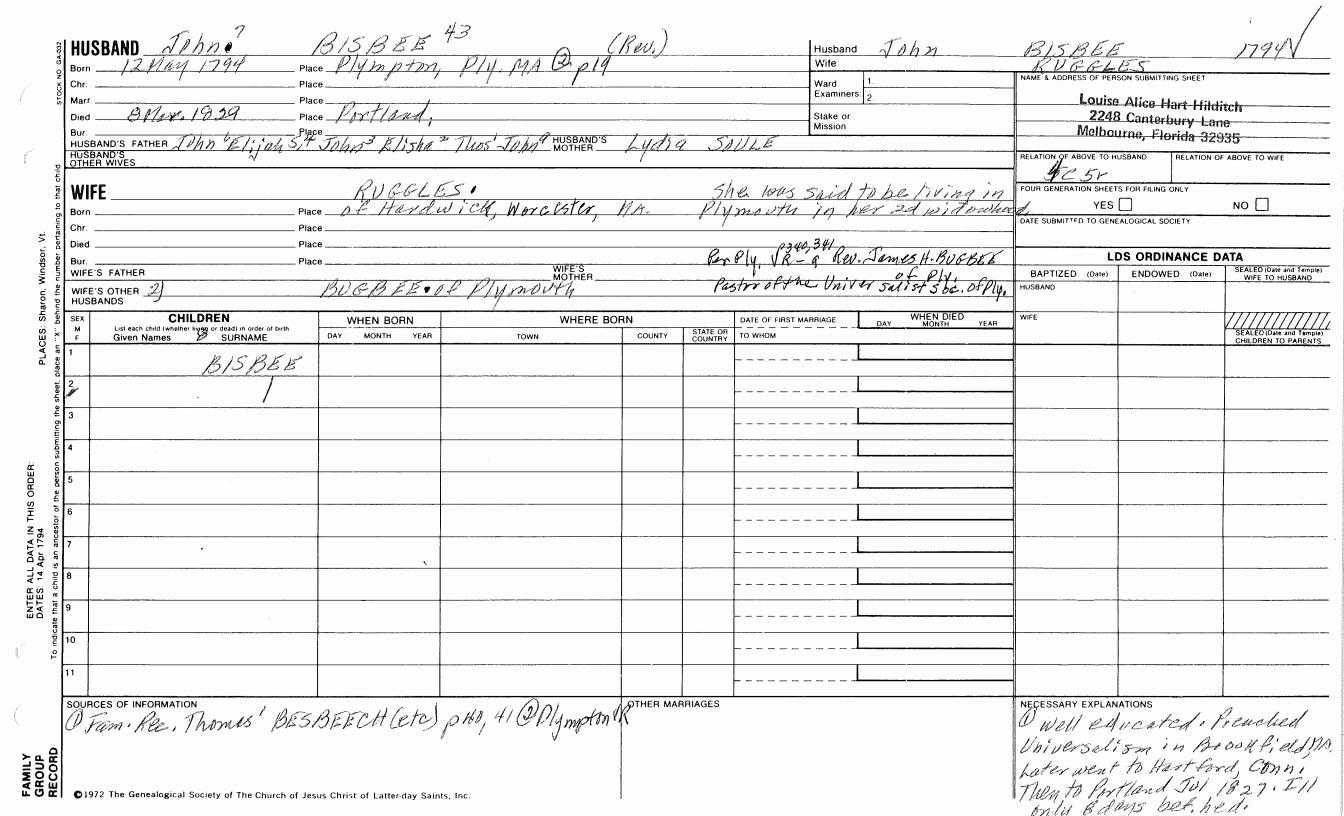 HUSBAND John 7 BISBEE 43 (Rev.)
Born 12 May 1794 Place Plympton, Ply. MA ② p19
Chr. Place
Marr Place
Died 8 Mar. 1829 Place Portland,
Bur. Place
HUSBAND'S FATHER John Elijah John Elisha Thos John HUSBAND'S MOTHER Lydia SOULE
HUSBAND'S OTHER WIVES
WIFE RUGGLES. She was said to be living in
Born Place of Hardwick, Worcester, MA. Plymouth in her 2d widowhood.
Chr. Place
Died Place p340,341
Bur. Place Per Ply. VR Rev. James H. BUGBEE of Ply.
WIFE'S FATHER WIFE'S MOTHER Pastor of the Universalist Soc. of Ply.
WIFE'S OTHER HUSBANDS 2) BUGBEE of Plymouth
Husband John BISBEE 1794
Wife RUGGLES
Ward 1.
Examiners 2
Stake or Mission
NAME & ADDRESS OF PERSON SUBMITTING SHEET
Louise Alice Hart Hilditch
2248 Canterbury Lane
Melbourne, Florida 32935
RELATION OF ABOVE TO HUSBAND RELATION OF ABOVE TO WIFE
C 5r
FOUR GENERATION SHEETS FOR FILING ONLY
YES NO
DATE SUBMITTED TO GENEALOGICAL SOCIETY
LDS ORDINANCE DATA
BAPTIZED (Date) ENDOWED (Date) SEALED (Date and Temple) WIFE TO HUSBAND
HUSBAND
WIFE
SEALED (Date and Temple) CHILDREN TO PARENTS
SEX M F
CHILDREN
List each child (whether living or dead) in order of birth
Given Names SURNAME
WHEN BORN
DAY MONTH YEAR
WHERE BORN
TOWN COUNTY STATE OR COUNTRY
DATE OF FIRST MARRIAGE
TO WHOM
WHEN DIED
DAY MONTH YEAR
1 BISBEE
2
3
4
5
6
7
8
9
10
11
SOURCES OF INFORMATION
① Fam. Rec. Thomas' BESBEECH (etc) p40, 41 ② Plympton VR
OTHER MARRIAGES
NECESSARY EXPLANATIONS
① Well educated. Preached
Universalism in Brookfield, MA.
Later went to Hartford, Conn.
Then to Portland Jul 1827. Ill
only 8 days bef. he d.
©1972 The Genealogical Society of The Church of Jesus Christ of Latter-day Saints, Inc.
STOCK NO. GA-032
To indicate that a child is an ancestor of the person submitting the sheet, place an "X" behind the number pertaining to that child
PLACES: Sharon, Windsor, Vt.
ENTER ALL DATA IN THIS ORDER:
DATES: 14 Apr 1794
FAMILY
GROUP
RECORD